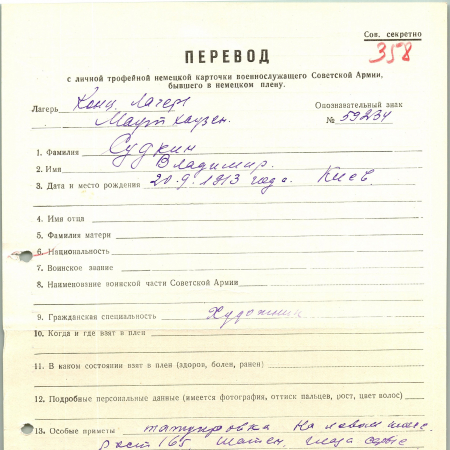 Сов. секретно
358
ПЕРЕВОД
с личной трофейной немецкой карточки военнослужащего Советской Армии,
бывшего в немецком плену.
Лагерь Конц. лагерь
Опознавательный знак
Маутхаузен.
№ 59234
1. Фамилия Судкин
2. Имя Владимир.
3. Дата и место рождения 20.9.1913 года. Киев.
4. Имя отца
5. Фамилия матери
6. Национальность
7. Воинское звание
8. Наименование воинской части Советской Армии
9. Гражданская специальность Художник
10. Когда и где взят в плен
11. В каком состоянии взят в плен (здоров, болен, ранен)
12. Подробные персональные данные (имеется фотография, оттиск пальцев, рост, цвет волос)
13. Особые приметы татуировка на левом
рост 165 шатен, глаза серые